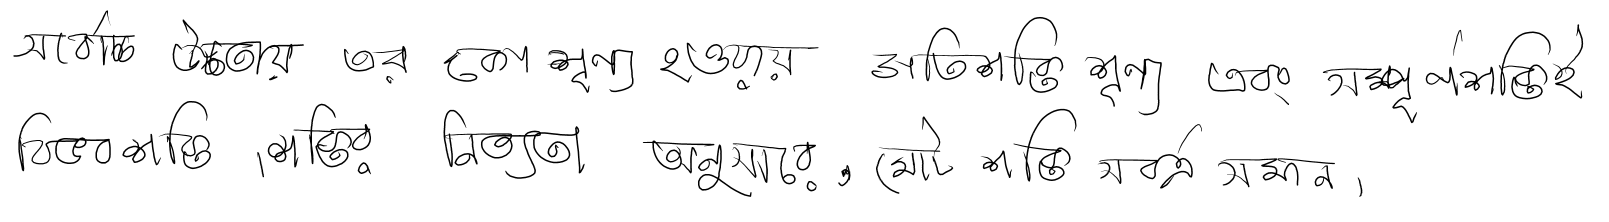 সর্বোচ্চ উচ্চতায় তর বেগ শূণ্য হওয়ায় গতিশক্তি শূণ্য এবং সম্পূর্ণশক্তিই
বিভবশক্তি ।শক্তির নিত্যতা অনুসারে, মোট শক্তি সর্বত্র সমান।